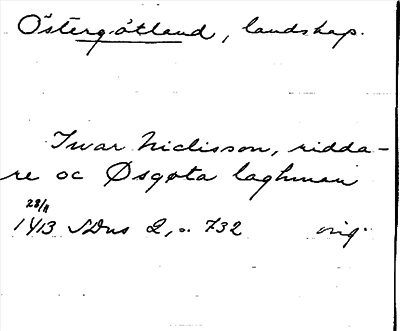 Östergötland, landskap.
Iwar Niclisson, ridda-
re oc Øsgøta laghman
28/8
1413 SDns 2, s. 732 orig.